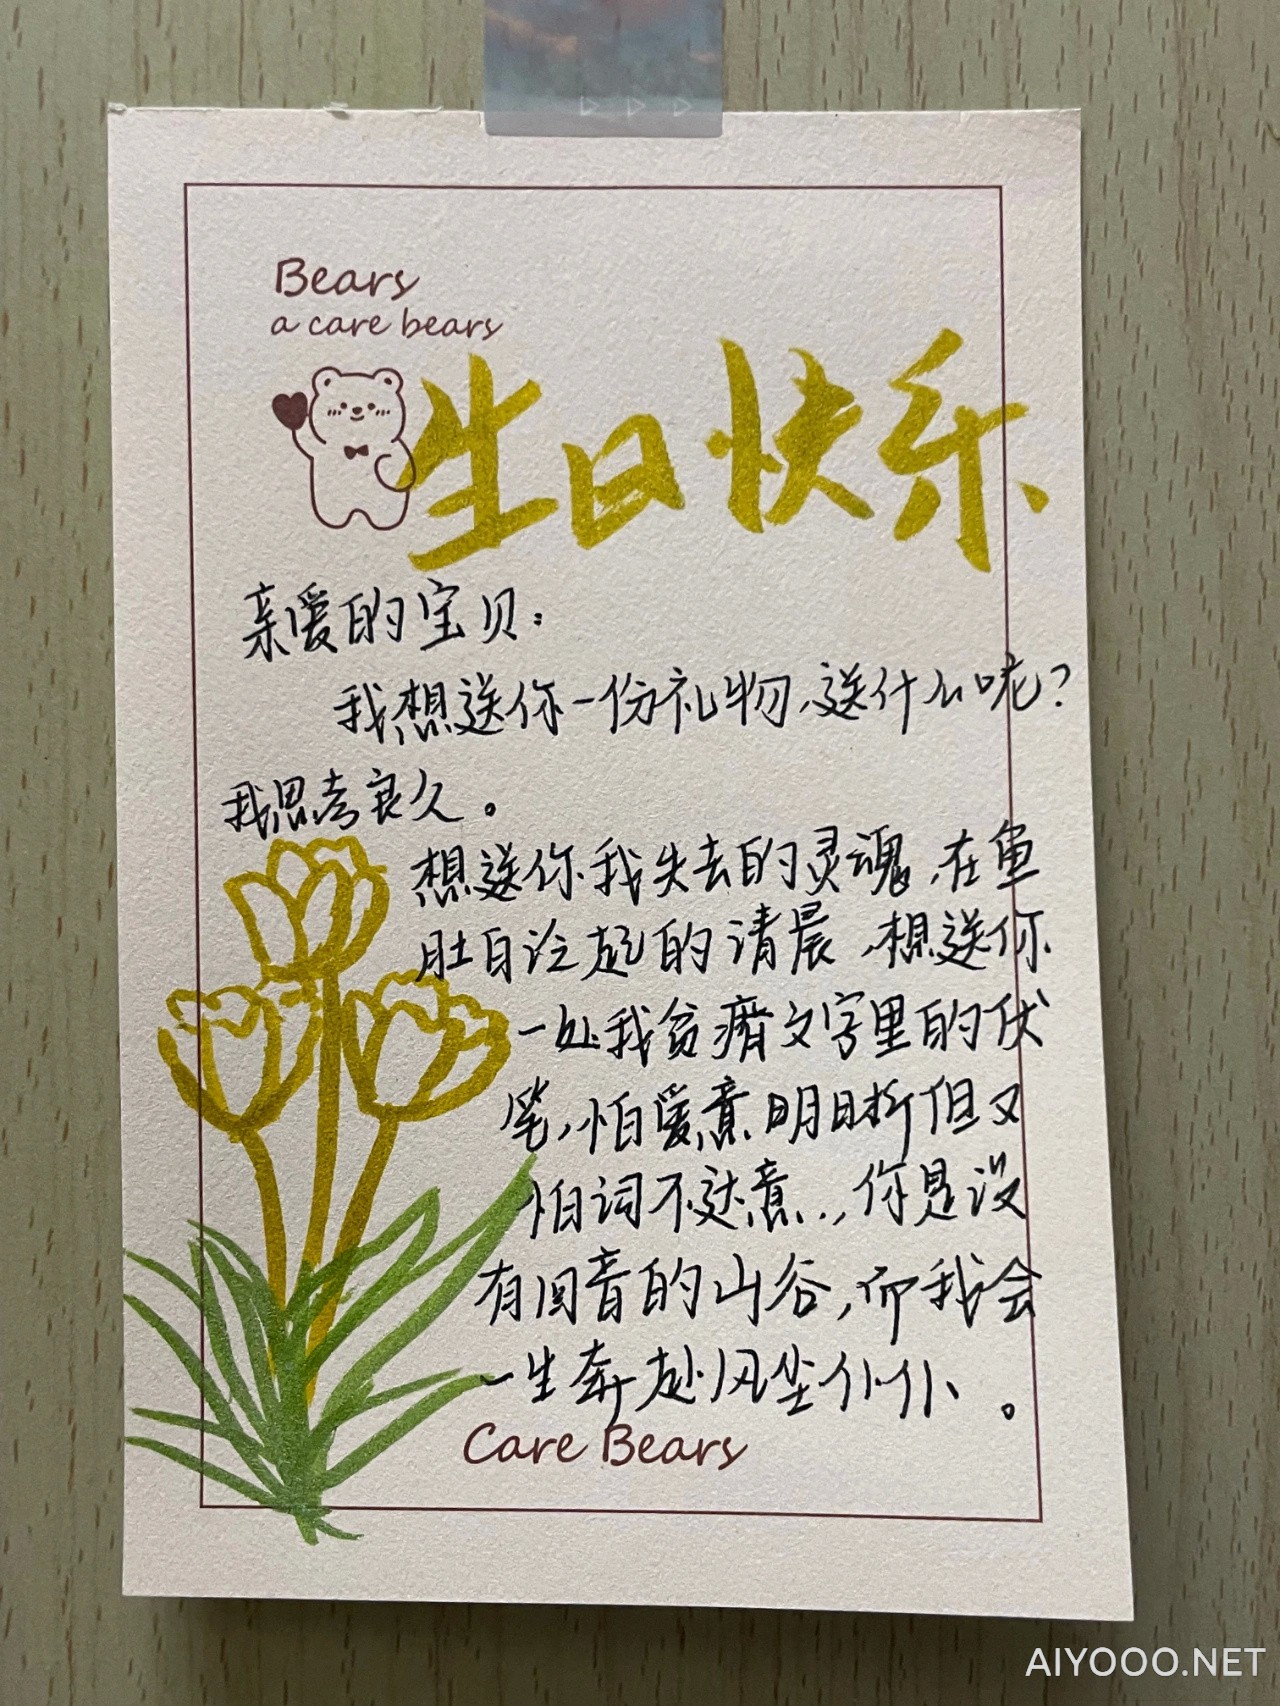 Bears
a care bears
生日快乐
亲爱的宝贝：
我想送你一份礼物，送什么呢？
我思考良久。
想送你我失去的灵魂，在鱼
肚白泛起的清晨，想送你
一处我贫瘠文字里的伏
笔，怕爱意明晰但又
怕词不达意..，你是没
有回音的山谷，而我会
一生奔赴风尘仆仆。
Care Bears
AIYOOO.NET